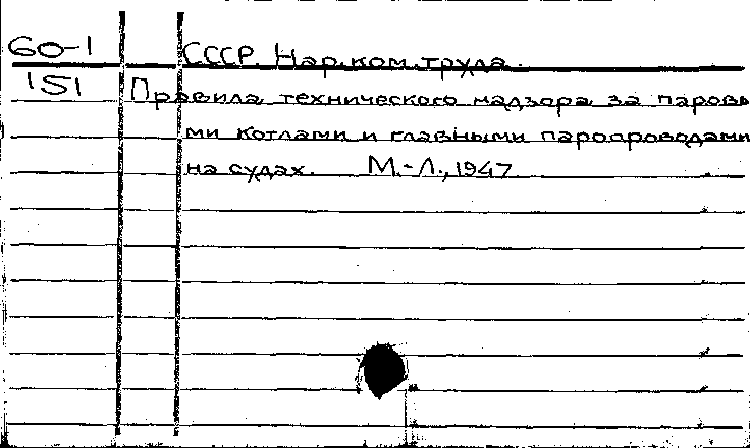 60-1 СССР. Нар.ком.труда.
151 Правила технического надзора за паровы
ми котлами и главными паропроводами
на судах. М.-Л., 1947